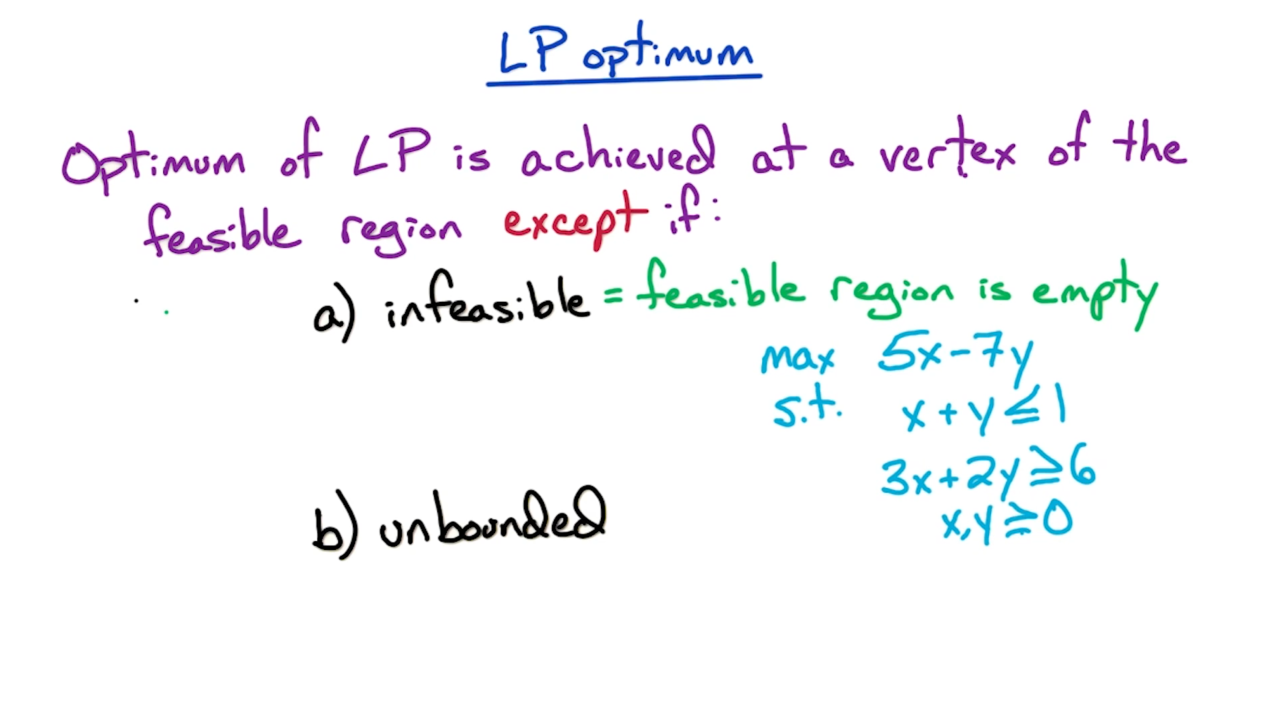 LP optimum
Optimum of LP is achieved at a vertex of the
feasible region except if:
a) infeasible = feasible region is empty
max 5x-7y
s.t. x+y≤1
3x+2y≥6
x,y≥0
b) unbounded